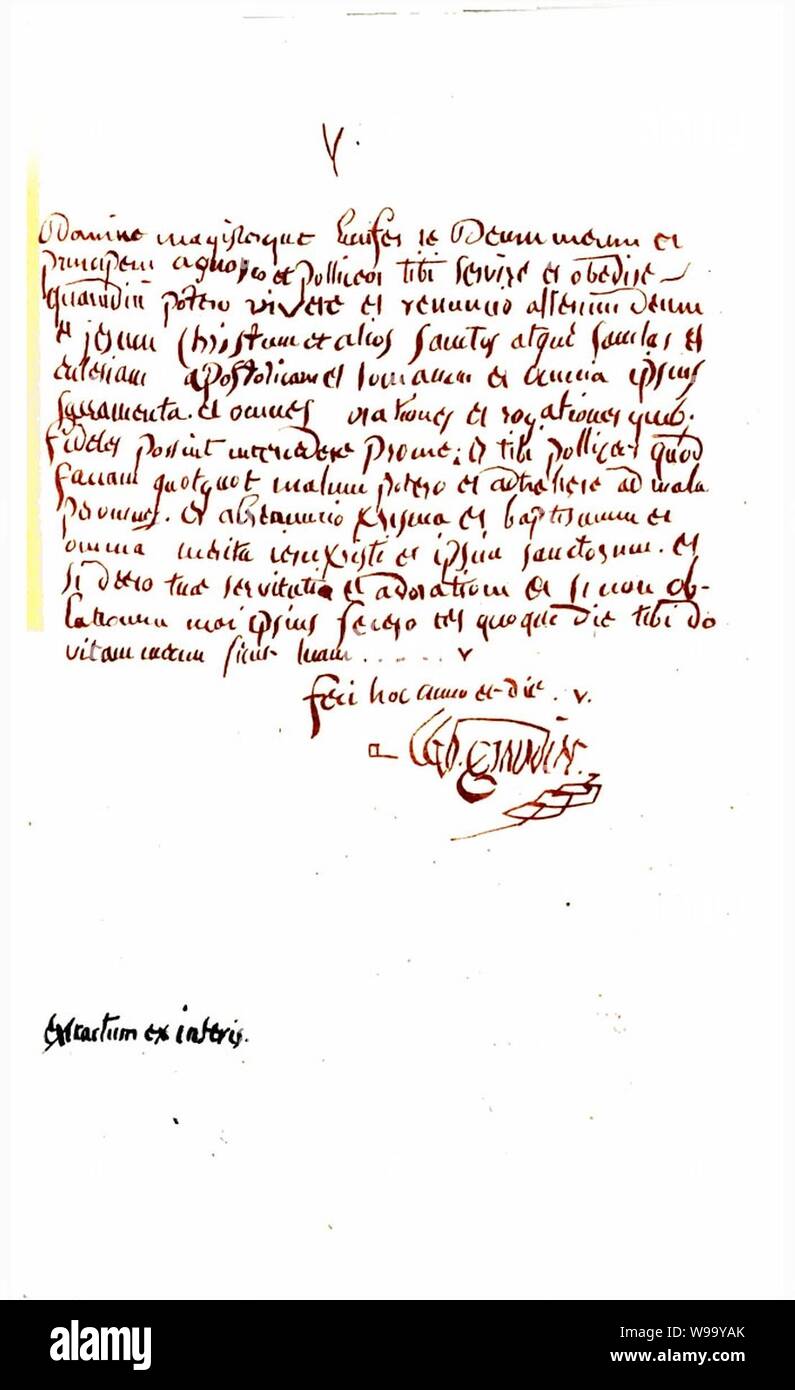 V.
Domine magisterque Lucifer te Deum meum et
principem agnosco et polliceor tibi servire et obedire
quamdiu potero vivere et renuncio alterum Deum
et jesum Christum et alios sanctos atque sanctas et
eclesiam apostolicam et romanam et omnia ipsius
sacramenta. et omnes orationes et rogationes quib.
fideles possint intercedere pro me; et tibi polliceor quod
faciam quotquot malum potero et adtrahere ad mala
per omnes. et abrenuncio chrisma et baptismum et
omnia merita et ipsius sanctorum. et
si deero tuae servituti et adorationi et si non ob-
lationem mei ipsius fecero ter quoque die tibi do
vitam meam sicut tuam ..... v
feci hoc anno et die. v.
extractum ex inferis.
alamy
Image ID: W99YAK
www.alamy.com